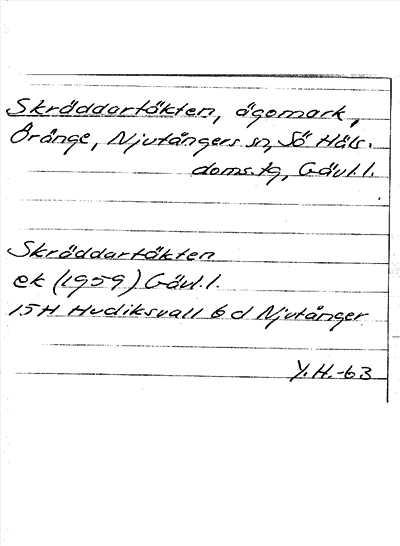 Skräddartäkten, ägomark,
Öränge, Njutångers sn, Sö Häls.
doms.tg, Gävl.l.
Skräddartäkten
ek (1959) Gävl.l.
15H Hudiksvall 6 d Njutånger
Y.H.-63